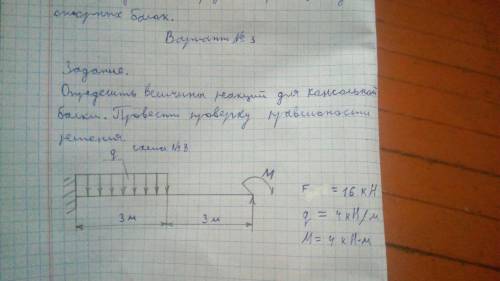 опорных балок.
Вариант № 3
Задание.
Определить величины реакций для консольной
балки. Провести проверку правильности
решения
схема №3
q
M
3м
3м
F = 16 кН
q = 4 кН/м
M = 4 кН·м